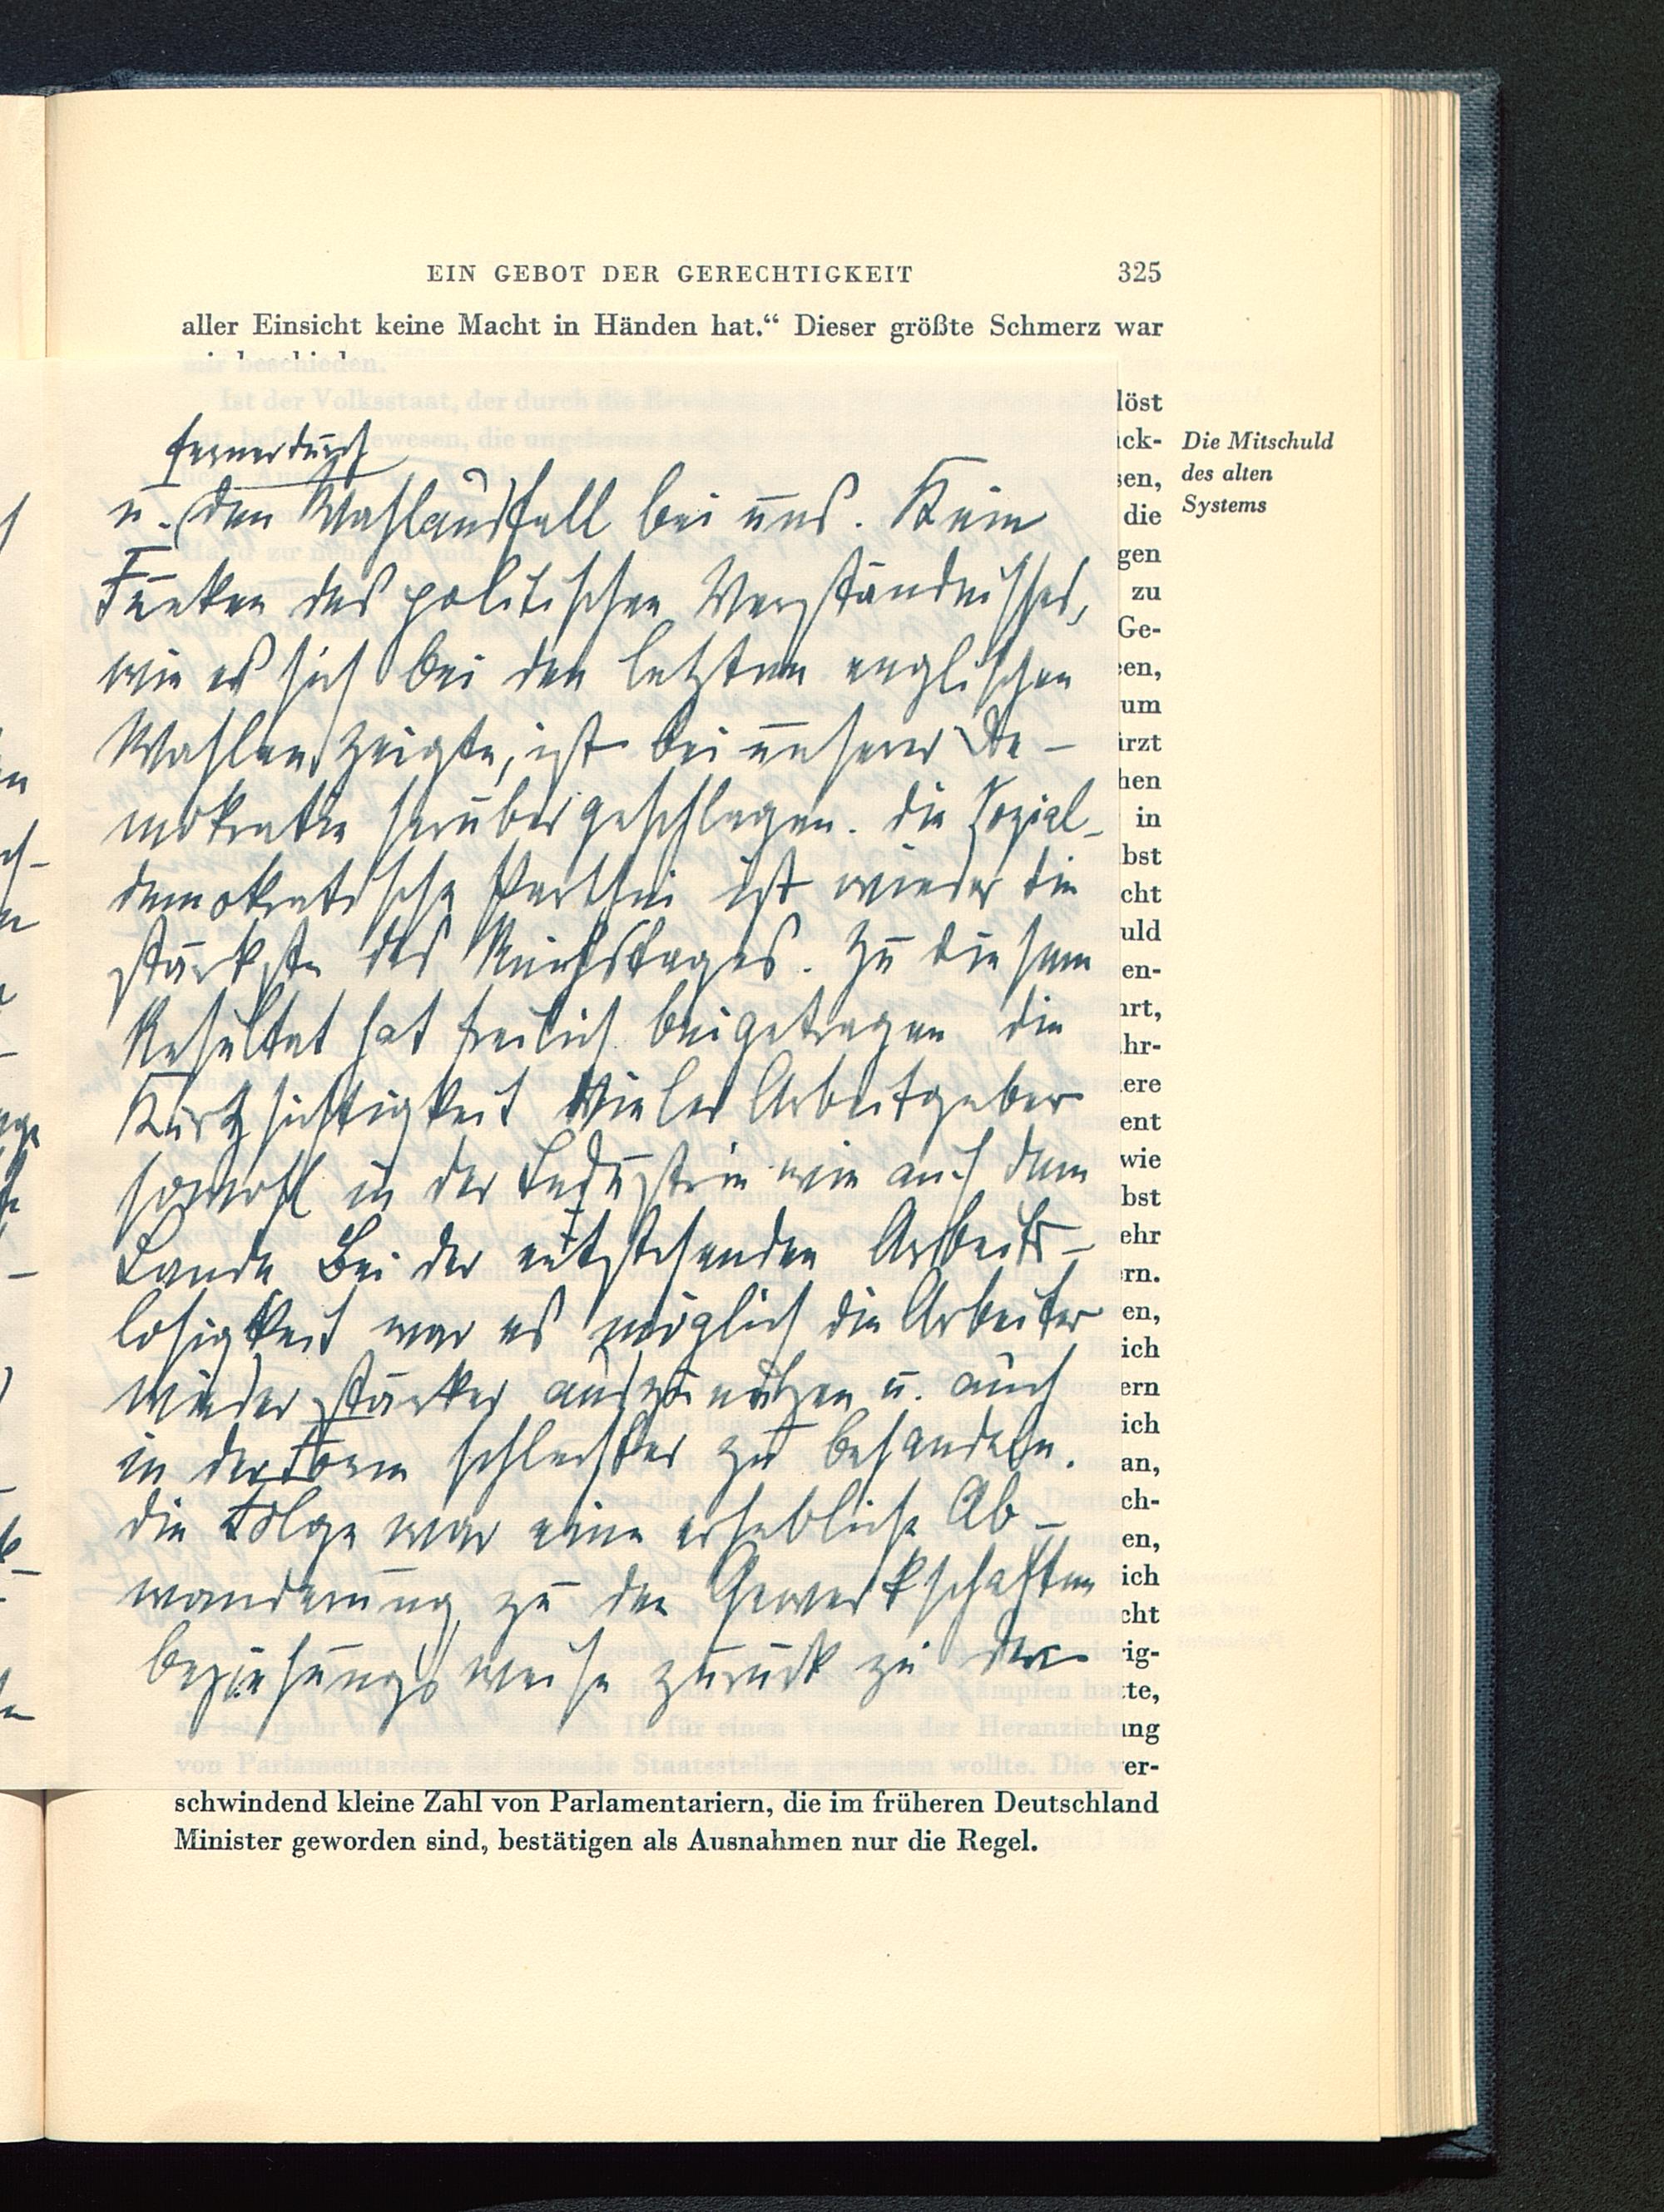 EIN GEBOT DER GERECHTIGKEIT 325
aller Einsicht keine Macht in Händen hat.“ Dieser größte Schmerz war
mir beschieden.
löst
ick-
sen,
die
gen
zu
Ge-
een,
um
ürzt
hen
in
bst
cht
uld
en-
hrt,
hr-
ere
ent
wie
bst
ehr
ern.
en,
ich
ern
ich
an,
ch-
en,
ich
cht
rig-
tte,
ung
ver-
Die Mitschuld
des alten
Systems
ferner durch
u. den Wahlausfall bei uns. Kein
Funken des politischen Verständnisses,
wie es sich bei den letzten englischen
Wahlen zeigte, ist bei unserer De-
mokratie herübergeschlagen. Die Sozial-
demokratische Parthei ist wieder die
stärkste des Reichstages. Zu diesem
Resultat hat freilich beigetragen die
Kurzsichtigkeit vieler Arbeitgeber
sowohl in der Industrie wie auch dem
Lande Bei der entstehenden Arbeits-
losigkeit war es möglich die Arbeiter
wieder stärker auszunützen u. auch
in der Form schlechter zu behandeln.
Die Folge war eine erhebliche Ab-
wanderung zu den Gewerkschaften
beziehungsweise zurück zu der
schwindend kleine Zahl von Parlamentariern, die im früheren Deutschland
Minister geworden sind, bestätigen als Ausnahmen nur die Regel.